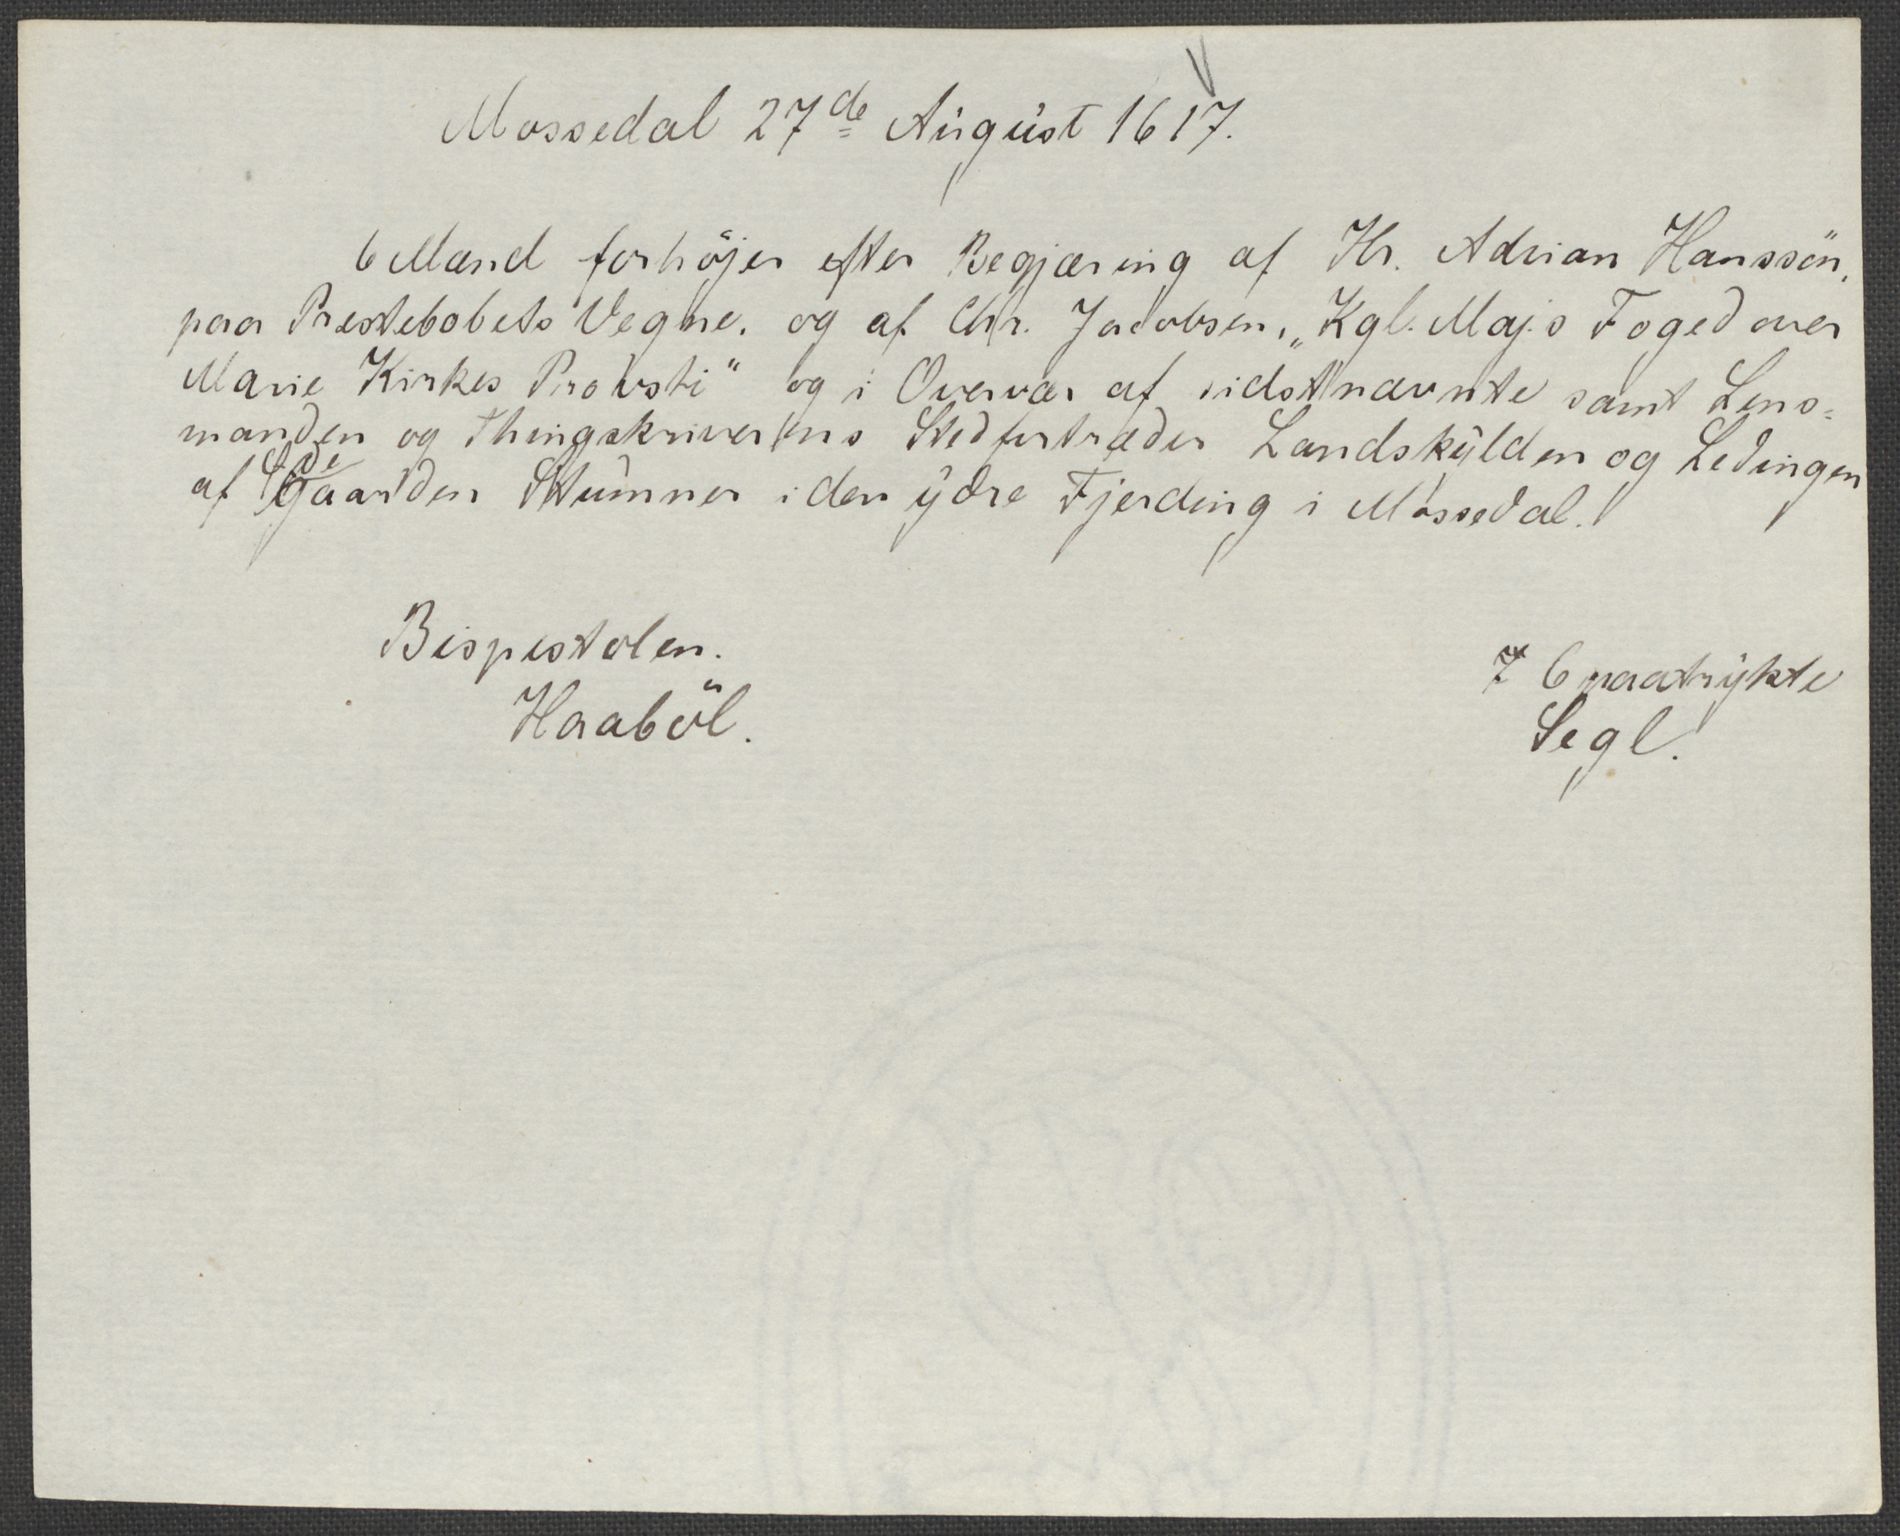 Mossedal 27de August 1617.
6 Mænd forhöjer efter Begjæring af Hr. Adrian Hanssön,
paa Prestebolets Vegne, og af Chr. Jacobsen, „Kgl. Maj.s Foged over
Marie Kirkes Provsti" og i Overvær af sidstnævnte samt Lens-
manden og Thingskriverens Stedfortræder Landskylden og Ledingen
af Ödegaarden Stumner i den ydre Fjerding i Mossedal.
Bispestolen.
Haaböl.
6 paatrykte
Segl.